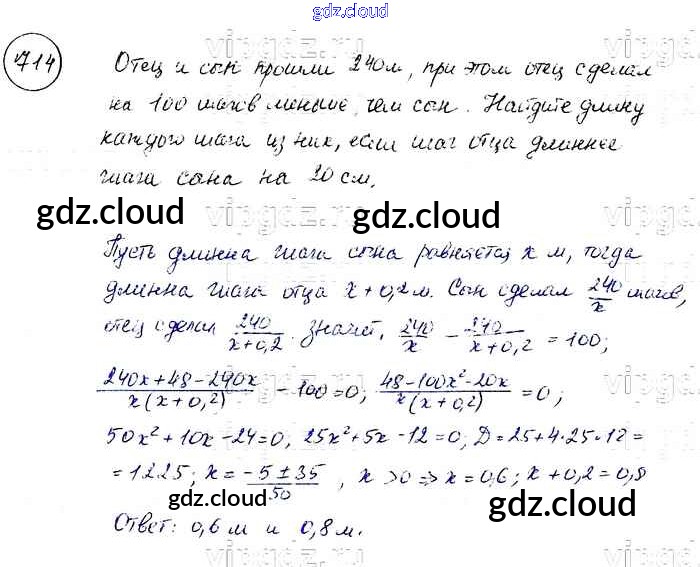 gdz.cloud
714
Отец и сын прошли 240м, при этом отец сделал
на 100 шагов меньше, чем сын. Найдите длину
каждого шага из них, если шаг отца длиннее
шага сына на 20 см.
gdz.cloud gdz.cloud
Пусть длинна шага сына равняется x м, тогда
длинна шага отца x + 0,2 м. Сын сделал 240/x шагов,
отец сделал 240/(x+0,2). Значит, 240/x - 240/(x+0,2) = 100;
(240x+48-240x)/(x(x+0,2)) - 100=0; (48-100x²-20x)/(x(x+0,2)) = 0;
50x²+10x-24=0; 25x²+5x-12=0; D=25+4·25·12=
=1225; x = (-5±35)/50, x >0 => x = 0,6; x + 0,2 = 0,8
gdz.cloud gdz.cloud
Ответ: 0,6 м и 0,8 м.